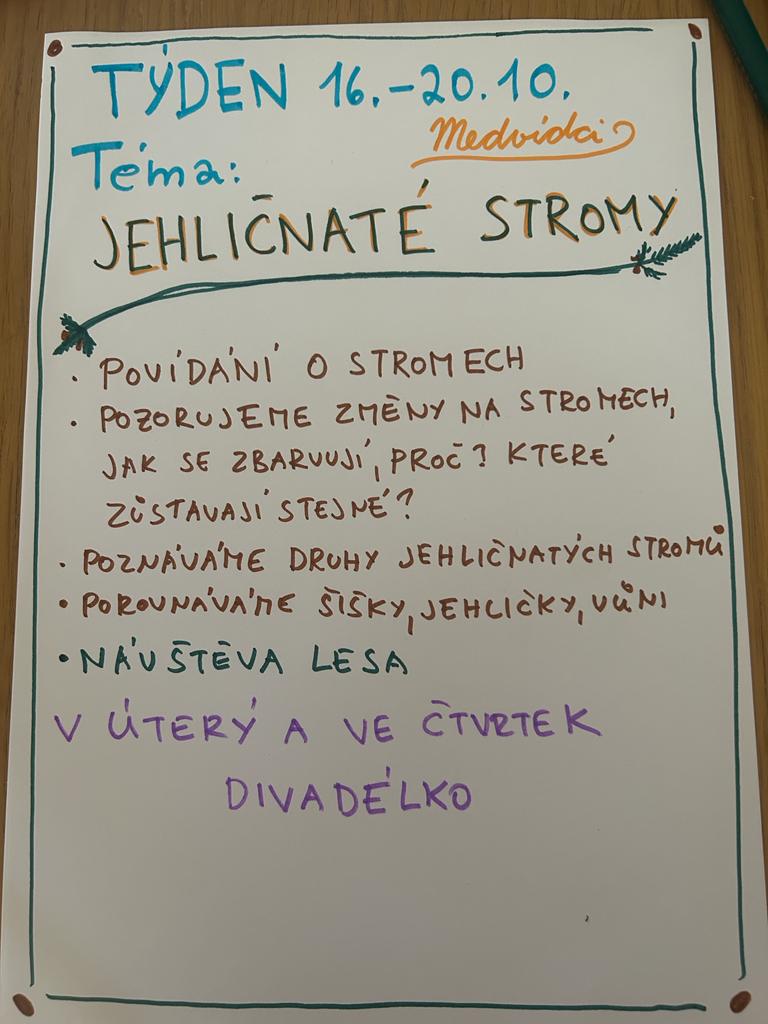 TÝDEN 16.-20.10.
Medvídci
Téma:
JEHLIČNATÉ STROMY
· POVÍDÁNÍ O STROMECH
· POZORUJEME ZMĚNY NA STROMECH,
JAK SE ZBARVUJÍ, PROČ? KTERÉ
ZŮSTAVAJÍ STEJNÉ?
· POZNÁVÁME DRUHY JEHLIČNATÝCH STROMŮ
· POROVNÁVÁME ŠIŠKY, JEHLIČKY, VŮNI
· NÁVŠTĚVA LESA
V ÚTERÝ A VE ČTVRTEK
DIVADÉLKO